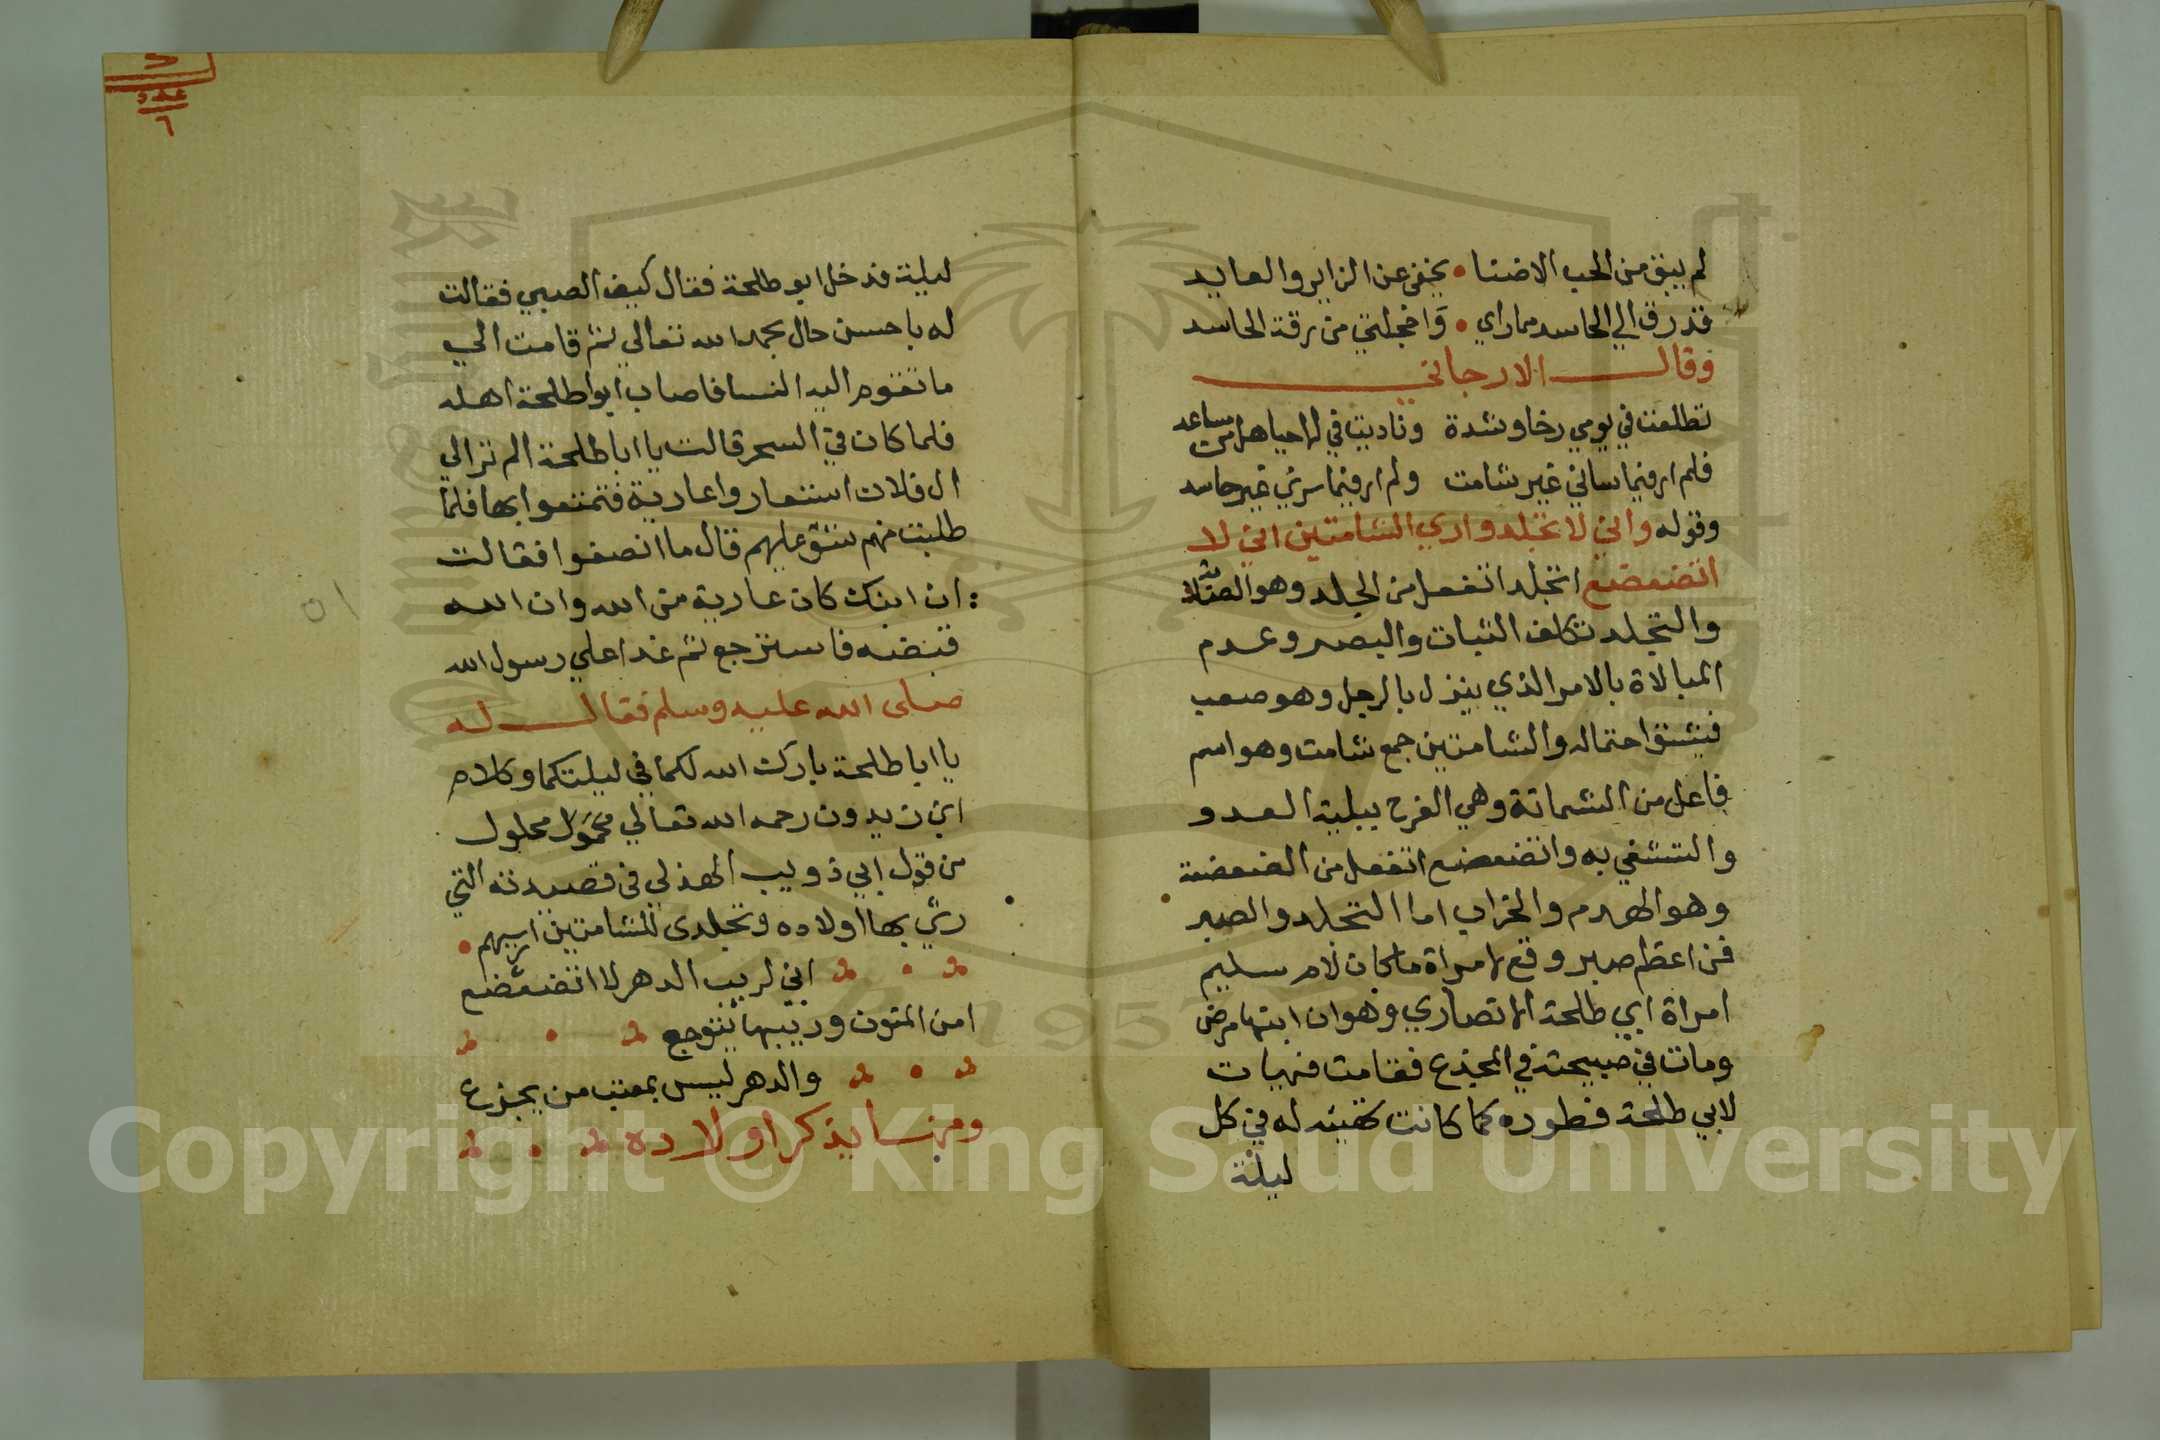 لم يبق من الحب الاضنا • يخفي عن الزاير والعايد
قد رق الي الحاسد مما راي • وَاخجلتي من رقة الحاسد
وقال الارجاني
تطلعت في يومي رخا وشدة وناديت في الاحيا هل من مساعد
فلم ار فيما ساني غير شامت ولم ار فيما سرني غير حاسد
وقوله واني لا تجلد واري الشامتين اني لا
اتضعضع اتجلد اتفعل من الجلد وهو الصلا
والتجلد تكلف الثبات والبصر وعدم
المبالاة بالامر الذي ينزل بالرجل وهو صعب
فيشق احتماله والشامتين جمع شامت وهو اسم
فاعل من الشماتة وهي الفرح ببلية العدو
والتشفي به واتضعضع اتفعل من الضعضعة
وهو الهدم والخراب اما التجلد والصبر
فمن اعظم صبر وقع لامراة ما كان لام سليم
امراة ابي طلحة الانصاري وهو ان ابنها مرض
ومات في صبيحته في المخدع فقامت فهيات
لابي طلحة فطوره كما كانت تهيئه له في كل
ليلة
ليلة فدخل ابو طلحة فقال كيف الصبي فقالت
له باحسن حال بحمد الله تعالي ثم قامت الي
ما تقوم اليه النسا فاصاب ابوا طلحة اهله
فلما كان في السحر قالت يا ابا طلحة الم تر الي
ال فلان استعاروا عارية فتمتعوا بها فلما
طلبت منهم شق عليهم قال ما انصفوا فقالت
ان ابنك كان عارية من الله وان الله
قبضه فاسترجع ثم غدا علي رسول الله
صلى الله عليه وسلم فقال له
يا ابا طلحة بارك الله لكما في ليلتكما وكلام
ابن زيدون رحمه الله تعالي محمول محلول
من قول ابي ذويب الهذلي في قصيدته التي
رثي بها اولاده وتجلدى للشامتين اريهم •
اني لريب الدهر لا اتضعضع
امن المنون وريبها يتوجع
والدهر ليس بمعتب من يجزع
ومنها يذكر اولاده
عدد
٦
Copyright © King Saud University
1957